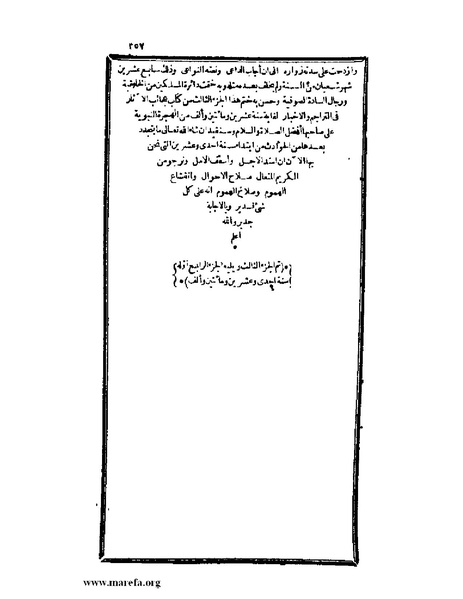 ٣٥٧
وازدحمت على سدته زواره الى ان أجاب الداعى ونعته النواعى وذلك سابع عشرين
شهر شعبان من السنة ولم يخلف بعده مثله وبه ختمت دائرة المسلكين من الخلوتية
ورجال السادة الصوفية وحسن به ختم هذا الجزء الثالث من كتاب عجائب الآثار
فى التراجم والاخبار لغاية سنة عشرين ومائتين وألف من الهجرة النبوية
على صاحبها أفضل الصلاة والسلام وسنقيد ان شاء الله تعالى ما يتجدد
بعدها من الحوادث من ابتداء سنة احدى وعشرين التى نحن
بها الآن ان امتد الاجل وأسعف الامل ونرجو من
الكريم المتعال صلاح الاحوال وانقشاع
الهموم وصلاح العموم انه على كل
شئ قدير وبالاجابة
جدير والله
أعلم
{*(تم الجزء الثالث ويليه الجزء الرابع أوله}
{سنة احدى وعشرين ومائتين وألف)*}
www.marefa.org